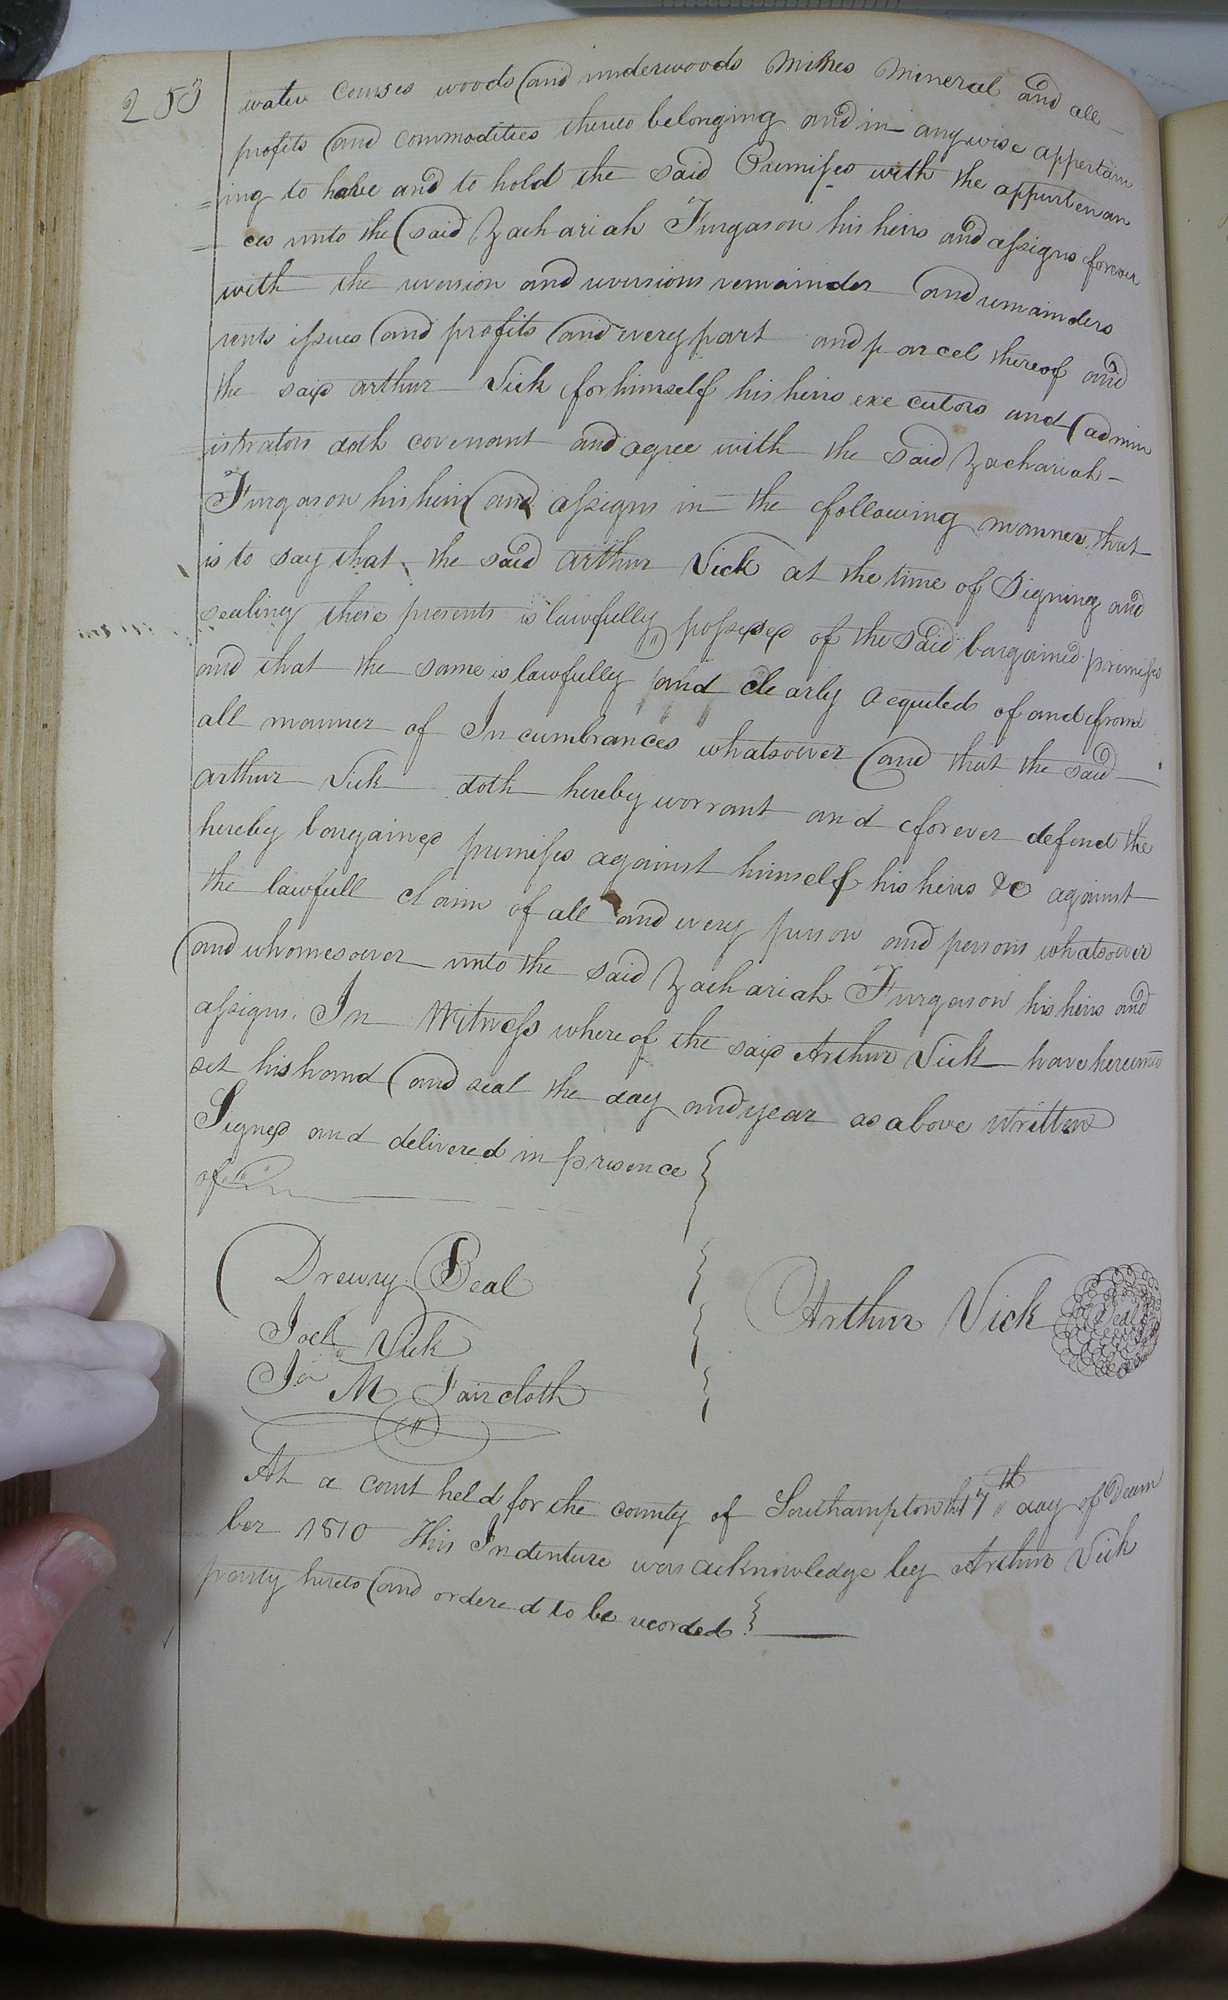 253
water courses woods and underwoods Mines Mineral and all
profits and commodities thereto belonging and in any wise appertain
=ing to have and to hold the said Premises with the appurtenan
=ces unto the said Zachariah Furgason his heirs and assigns forever
with the reversion and reversions remainder and remainders
rents issues and profits and every part and parcel thereof and
the said arthur Vick for himself his heirs executors and admin
=istrators doth covenant and agree with the said Zachariah
Furgason his heirs and assigns in the following manner that
is to say that the said arthur Vick at the time of Signing and
sealing these presents is lawfully possessed of the said bargained premises
and that the same is lawfully and clearly acquited of and from
all manner of Incumbrances whatsoever and that the said
arthur Vick doth hereby warrant and forever defend the
hereby bargained premises against himself his heirs &c against
the lawfull claim of all and every person and persons whatsoever
and whomesoever unto the said Zachariah Furgason his heirs and
assigns. In Witness whereof the said Arthur Vick have hereunto
set his hand and seal the day and year as above written
Signed and delivered in presence
of
Drewry Beal
Joel Vick
Arthur Vick Seal
M Faircloth
At a court held for the county of Southampton the 17th day of Decem
ber 1810 This Indenture was acknowledge by Arthur Vick
party hereto and ordered to be recorded